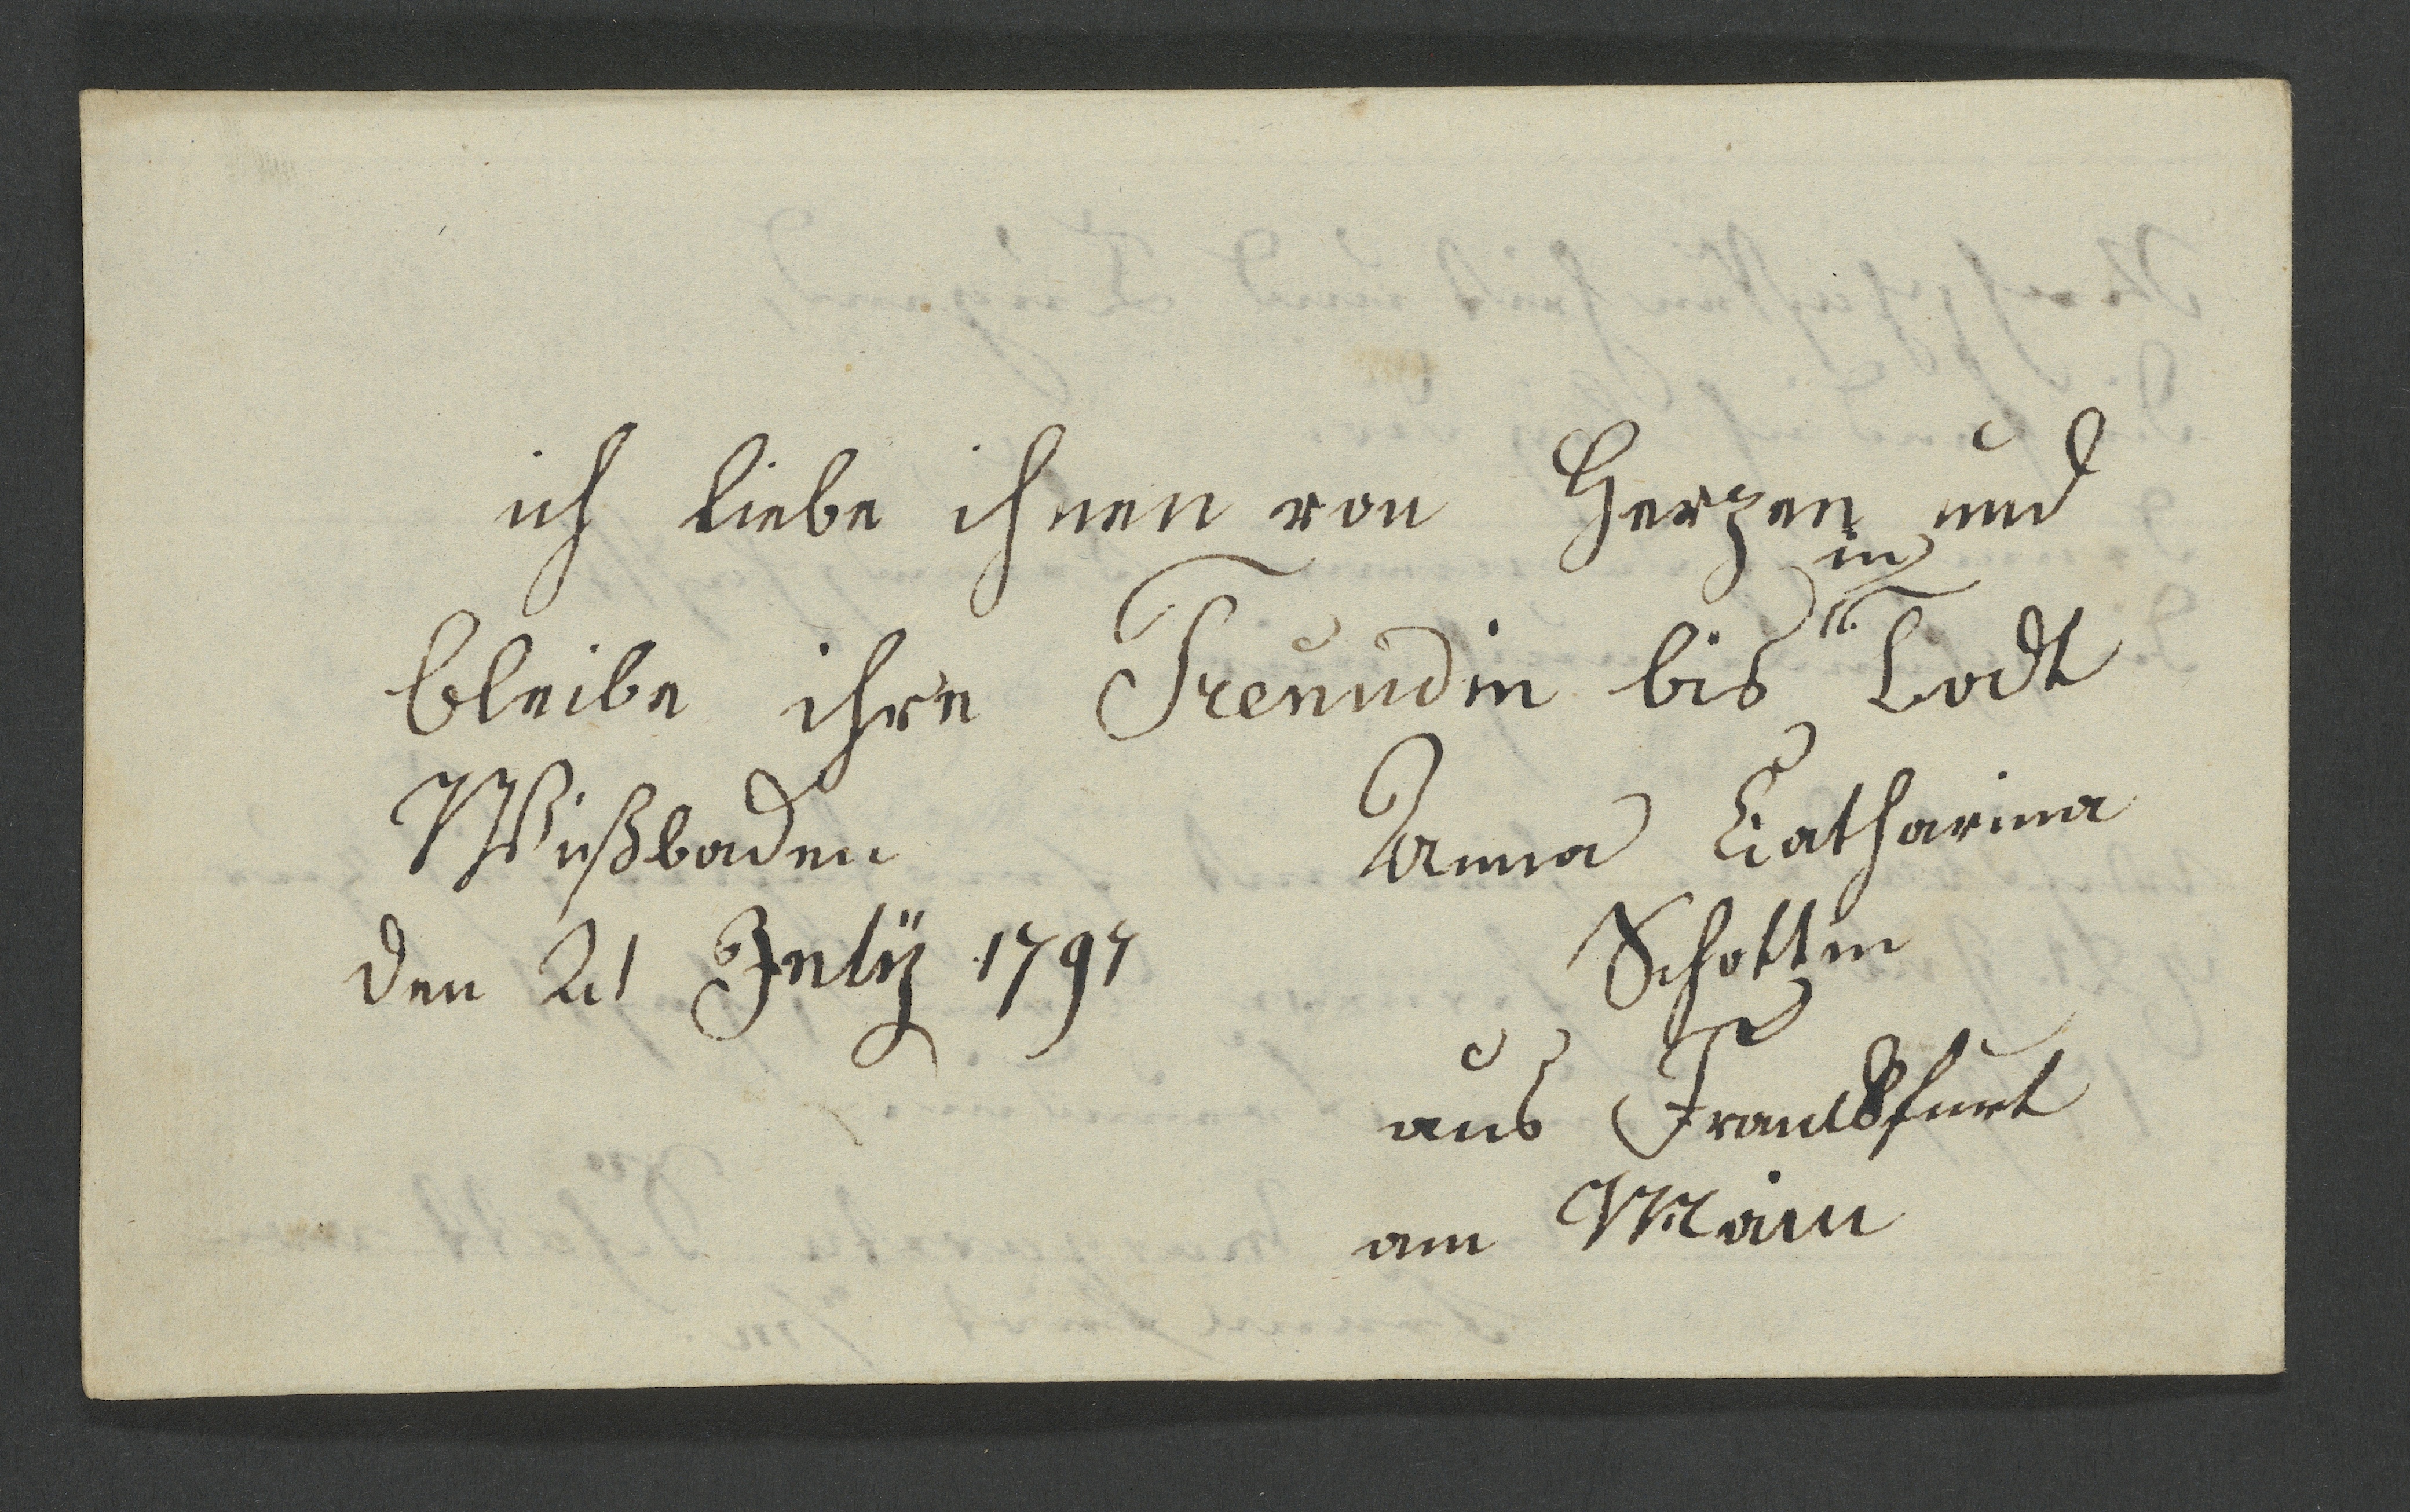 ich liebe ihnen von Herzen und
bleibe ihre Freundin bis in Todt
Wißbaden
den 21 Julÿ 1797
Anna Catharina
Schottin
aus Franckfurt
am Main